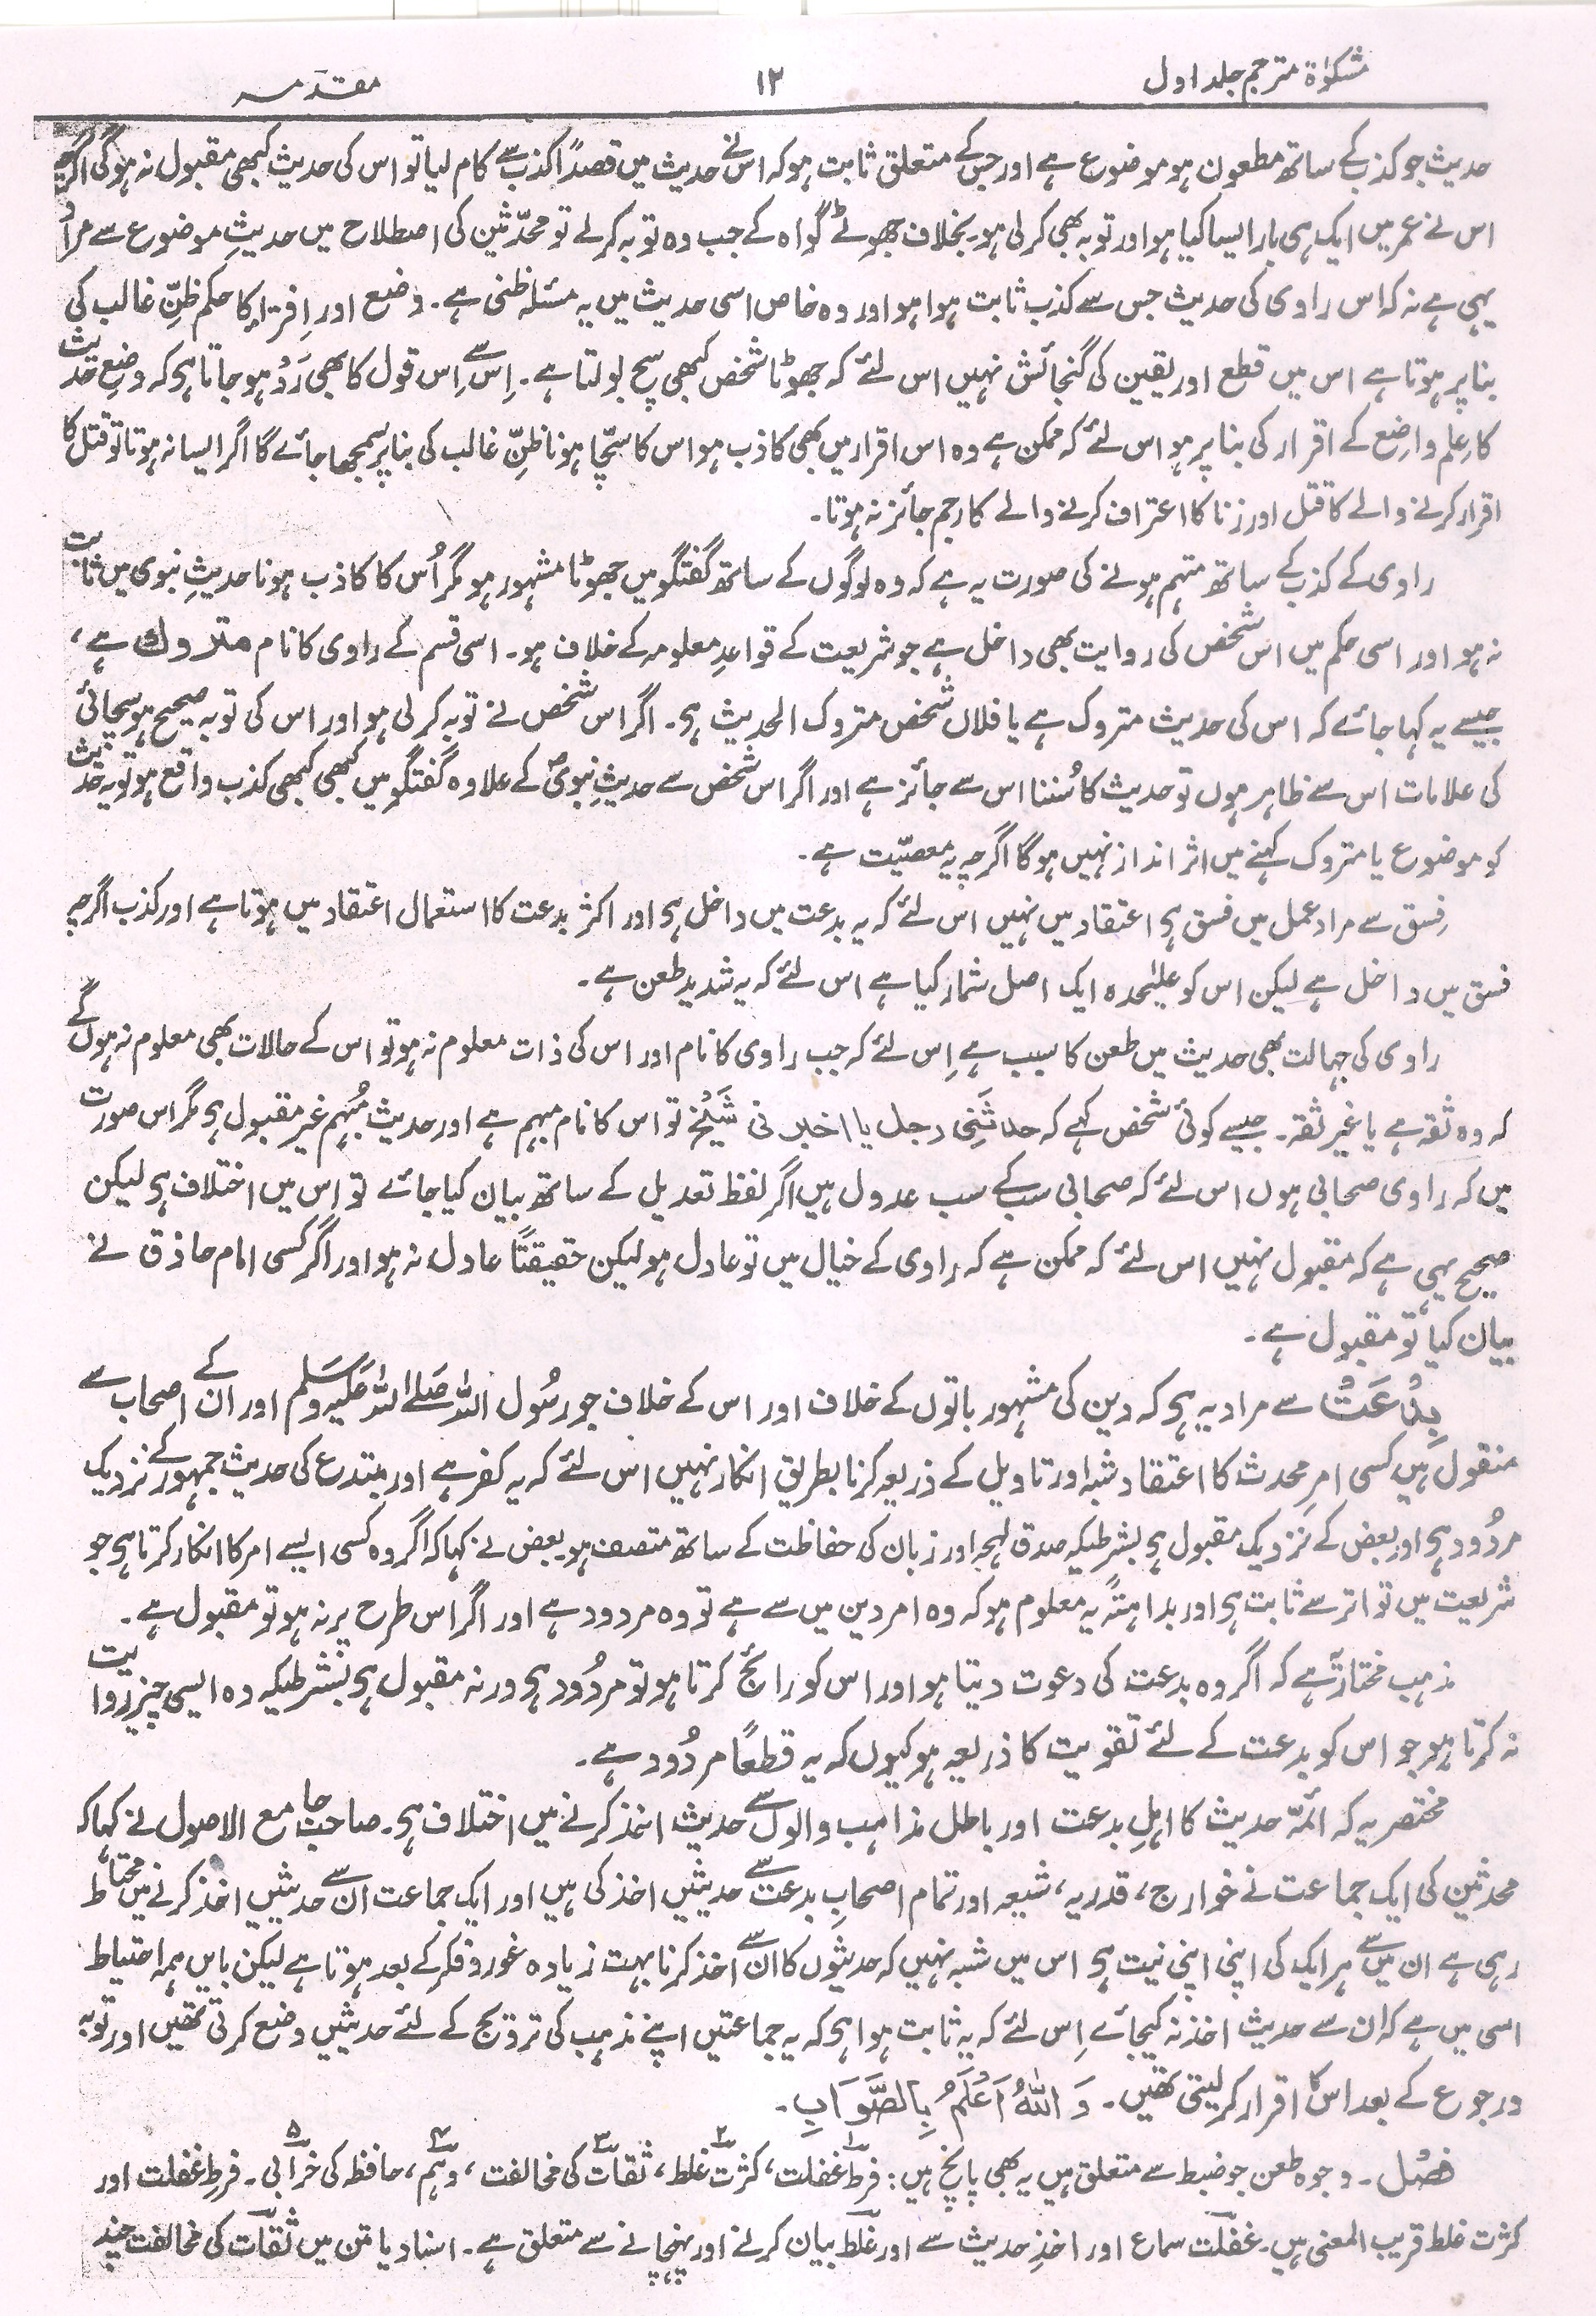 مشکوٰة مترجم جلد اول
۱۲
مقدّمہ
حدیث جو کذب کے ساتھ مطعون ہو موضوع ہے اور جس کے متعلق ثابت ہو کہ اس نے حدیث میں قصداً کذب سے کام لیا تو اس کی حدیث کبھی مقبول نہ ہوگی اگرچہ
اس نے عمر میں ایک ہی بار ایسا کیا ہو اور توبہ بھی کرلی ہو۔ بخلاف جھوٹے گواہ کے جب وہ توبہ کرلے تو محدّثین کی اصطلاح میں حدیثِ موضوع سے مراد
یہی ہے نہ کہ اس راوی کی حدیث جس سے کذب ثابت ہوا ہو اور وہ خاص اسی حدیث میں یہ مسئلہ ظنی ہے۔ وضع اور اِفترا کا حکم ظنِّ غالب کی
بنا پر ہوتا ہے اس میں قطع اور یقین کی گنجائش نہیں اس لئے کہ جھوٹا شخص کبھی سچ بولتا ہے۔ اِس سے اِس قول کا بھی رَدْ ہو جاتا ہی کہ وضعِ حدیث
کا عِلم واضِع کے اقرار کی بنا پر ہو اس لئے کہ ممکن ہے وہ اس اقرار میں بھی کاذب ہو اس کا سچّا ہونا ظنِّ غالب کی بنا پر سمجھا جائے گا اگر ایسا نہ ہوتا تو قتل کا
اقرار کرنے والے کا قتل اور زنا کا اعتراف کرنے والے کا رجم جائز نہ ہوتا۔
راوی کے کذب کے ساتھ متہم ہونے کی صورت یہ ہے کہ وہ لوگوں کے ساتھ گفتگو میں جھوٹا مشہور ہو مگر اُس کا کاذب ہونا حدیثِ نبوی میں ثابت
نہ ہو اور اسی حکم میں اس شخص کی روایت بھی داخل ہے جو شریعت کے قواعدِ معلومہ کے خلاف ہو۔ اسی قسم کے راوی کا نام متروک ہے،
جیسے یہ کہا جائے کہ اس کی حدیث متروک ہے یا فلاں شخص متروک الحدیث ہی۔ اگر اس شخص نے توبہ کرلی ہو اور اس کی توبہ صحیح ہو سچائی
کی علامات اس سے ظاہر ہوں تو حدیث کا سُننا اس سے جائز ہے اور اگر اس شخص سے حدیثِ نبویؐ کے علاوہ گفتگو میں کبھی کبھی کذب واقع ہو تو یہ حدیث
کو موضوع یا متروک کہنے میں اثر انداز نہیں ہوگا اگرچہ یہ معصیّت ہے۔
فِسق سے مراد عمل میں فسق ہی اعتقاد میں نہیں اس لئے کہ یہ بدعت میں داخل ہی اور اکثر بدعت کا استعمال اعتقاد میں ہوتا ہے اور کذب اگرچہ
فسق میں داخل ہے لیکن اس کو علیٰحدہ ایک اصل شمار کیا ہے اس لئے کہ یہ شدید طعن ہے۔
راوی کی جہالت بھی حدیث میں طعن کا سبب ہے اِس لئے کہ جب راوی کا نام اور اس کی ذات معلوم نہ ہو تو اس کے حالات بھی معلوم نہ ہوں گے
کہ وہ ثقہ ہے یا غیر ثقہ۔ جیسے کوئی شخص کہے کہ حدثَنِی رجل یا اخبرنی شَیْخٌ تو اس کا نام مبہم ہے اور حدیث مُبہم غیر مقبول ہی مگر اس صورت
میں کہ راوی صحابی ہوں اس لئے کہ صحابی سب کے سب عدول ہیں اگر لفظ تعدیل کے ساتھ بیان کیا جائے تو اس میں اختلاف ہی لیکن
صحیح یہی ہے کہ مقبول نہیں اس لئے کہ ممکن ہے کہ راوی کے خیال میں تو عادل ہو لیکن حقیقتًا عادل نہ ہو اور اگر کسی امام حاذق نے
بیان کیا تو مقبول ہے۔
بِدْعَتْ سے مراد یہ ہی کہ دین کی مشہور باتوں کے خلاف اور اس کے خلاف جو رسُول اللہ صَلے اللہ عَلَیہ وسَلم اور ان کے اصحاب سے
منقول ہیں کسی امرِ محدث کا اعتقاد شبہ اور تاویل کے ذریعہ کرنا بطریقِ انکار نہیں اس لئے کہ یہ کفر ہے اور مبتدع کی حدیث جمہور کے نزدیک
مردُود ہی اور بعض کے نزدیک مقبول ہی بشرطیکہ صدق لہجہ اور زبان کی حفاظت کے ساتھ متصف ہو۔ بعض نے کہا کہ اگر وہ کسی ایسے امر کا انکار کرتا ہی جو
شریعت میں تواتر سے ثابت ہی اور بداہتہً یہ معلوم ہو کہ وہ امر دین میں سے ہے تو وہ مردود ہے اور اگر اس طرح پر نہ ہو تو مقبول ہے۔
مذہب مختار یہ ہے کہ اگر وہ بدعت کی دعوت دیتا ہو اور اس کو رائج کرتا ہو تو مردُود ہی ورنہ مقبول ہی بشرطیکہ وہ ایسی چیز روایت
نہ کرتا ہو جو اس کو بدعت کے لئے تقویت کا ذریعہ ہو کیوں کہ یہ قطعًا مردُود ہے۔
مختصر یہ کہ ائمّہ حدیث کا اہلِ بدعت اور باطل مذاہب والوں سے حدیث اخذ کرنے میں اختلاف ہی۔ صاحب جامع الاصول نے کہا کہ
محدثین کی ایک جماعت نے خوارج، قدریہ، شیعہ اور تمام اصحابِ بدعت سے حدیثیں اخذ کی ہیں اور ایک جماعت ان سے حدیثیں اخذ کرنے میں محتاط
رہی ہے ان میں سے ہر ایک کی اپنی اپنی نیت ہی اس میں شبہ نہیں کہ حدیثوں کا ان سے اخذ کرنا بہت زیادہ غور و فکر کے بعد ہوتا ہے لیکن بایں ہمہ احتیاط
اسی میں ہے کہ ان سے حدیث اخذ نہ کیجائے اِس لئے کہ یہ ثابت ہوا ہی کہ یہ جماعتیں اپنے مذہب کی ترویج کے لئے حدیثیں وضع کرتی تھیں اور توبہ
ورجوع کے بعد اس کا اقرار کرلیتی تھیں۔ وَ اللہُ اَعْلَمُ بِالصَّوَابِ۔
فصْل۔ وجوہ طعن جو ضبط سے متعلق ہیں یہ بھی پانچ ہیں: فرطِ غفلت۱، کثرت غلط۲، ثقات کی مخالفت۳، وہم۴، حافظہ کی خرابی۵۔ فرطِ غفلت اور
کثرت غلط قریب المعنی ہیں۔ غفلت سماع اور اخذِ حدیث سے اور غلط بیان کرنے اور پہنچانے سے متعلق ہے۔ اسناد یا متن میں ثقات کی مخالفت چند